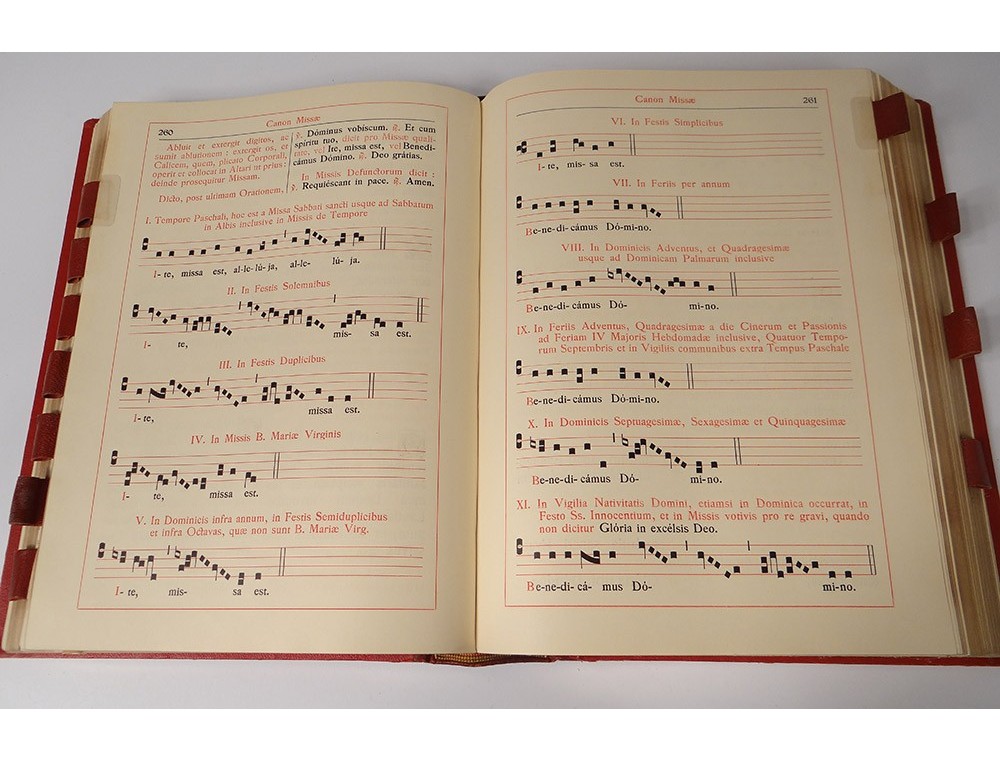 260
Canon Missæ
Abluit et extergit digitos, ac
sumit ablutionem : extergit os, et
Calicem, quem, plicato Corporali,
operit et collocat in Altari ut prius :
deinde prosequitur Missam.
Dicto, post ultimam Orationem,
℣. Dóminus vobíscum. ℟. Et cum
spíritu tuo, dicit pro Missæ quali-
tate, vel Ite, missa est, vel Benedi-
cámus Dómino. ℟. Deo grátias.
In Missis Defunctorum dicit :
℣. Requiéscant in pace. ℟. Amen.
I. Tempore Paschali, hoc est a Missa Sabbati sancti usque ad Sabbatum
in Albis inclusive in Missis de Tempore
I- te, missa est, al-le-lú-ja, al-le- lú- ja.
II. In Festis Solemnibus
I- te, mis- sa est.
III. In Festis Duplicibus
I- te, missa est.
IV. In Missis B. Mariæ Virginis
I- te, missa est.
V. In Dominicis infra annum, in Festis Semiduplicibus
et infra Octavas, quæ non sunt B. Mariæ Virg.
I- te, mis- sa est.
Canon Missæ
261
VI. In Festis Simplicibus
I- te, mis- sa est.
VII. In Feriis per annum
Be-ne-di-cámus Dó-mi-no.
VIII. In Dominicis Adventus, et Quadragesimæ
usque ad Dominicam Palmarum inclusive
Be-ne-di-cámus Dó- mi-no.
IX. In Feriis Adventus, Quadragesimæ a die Cinerum et Passionis
ad Feriam IV Majoris Hebdomadæ inclusive, Quatuor Tempo-
rum Septembris et in Vigiliis communibus extra Tempus Paschale
Be-ne-di-cámus Dó-mi-no.
X. In Dominicis Septuagesimæ, Sexagesimæ et Quinquagesimæ
Be-ne-di-cámus Dó- mi-no.
XI. In Vigilia Nativitatis Domini, etiamsi in Dominica occurrat, in
Festo Ss. Innocentium, et in Missis votivis pro re gravi, quando
non dicitur Glória in excélsis Deo.
Be-ne-di-cá- mus Dó- mi-no.